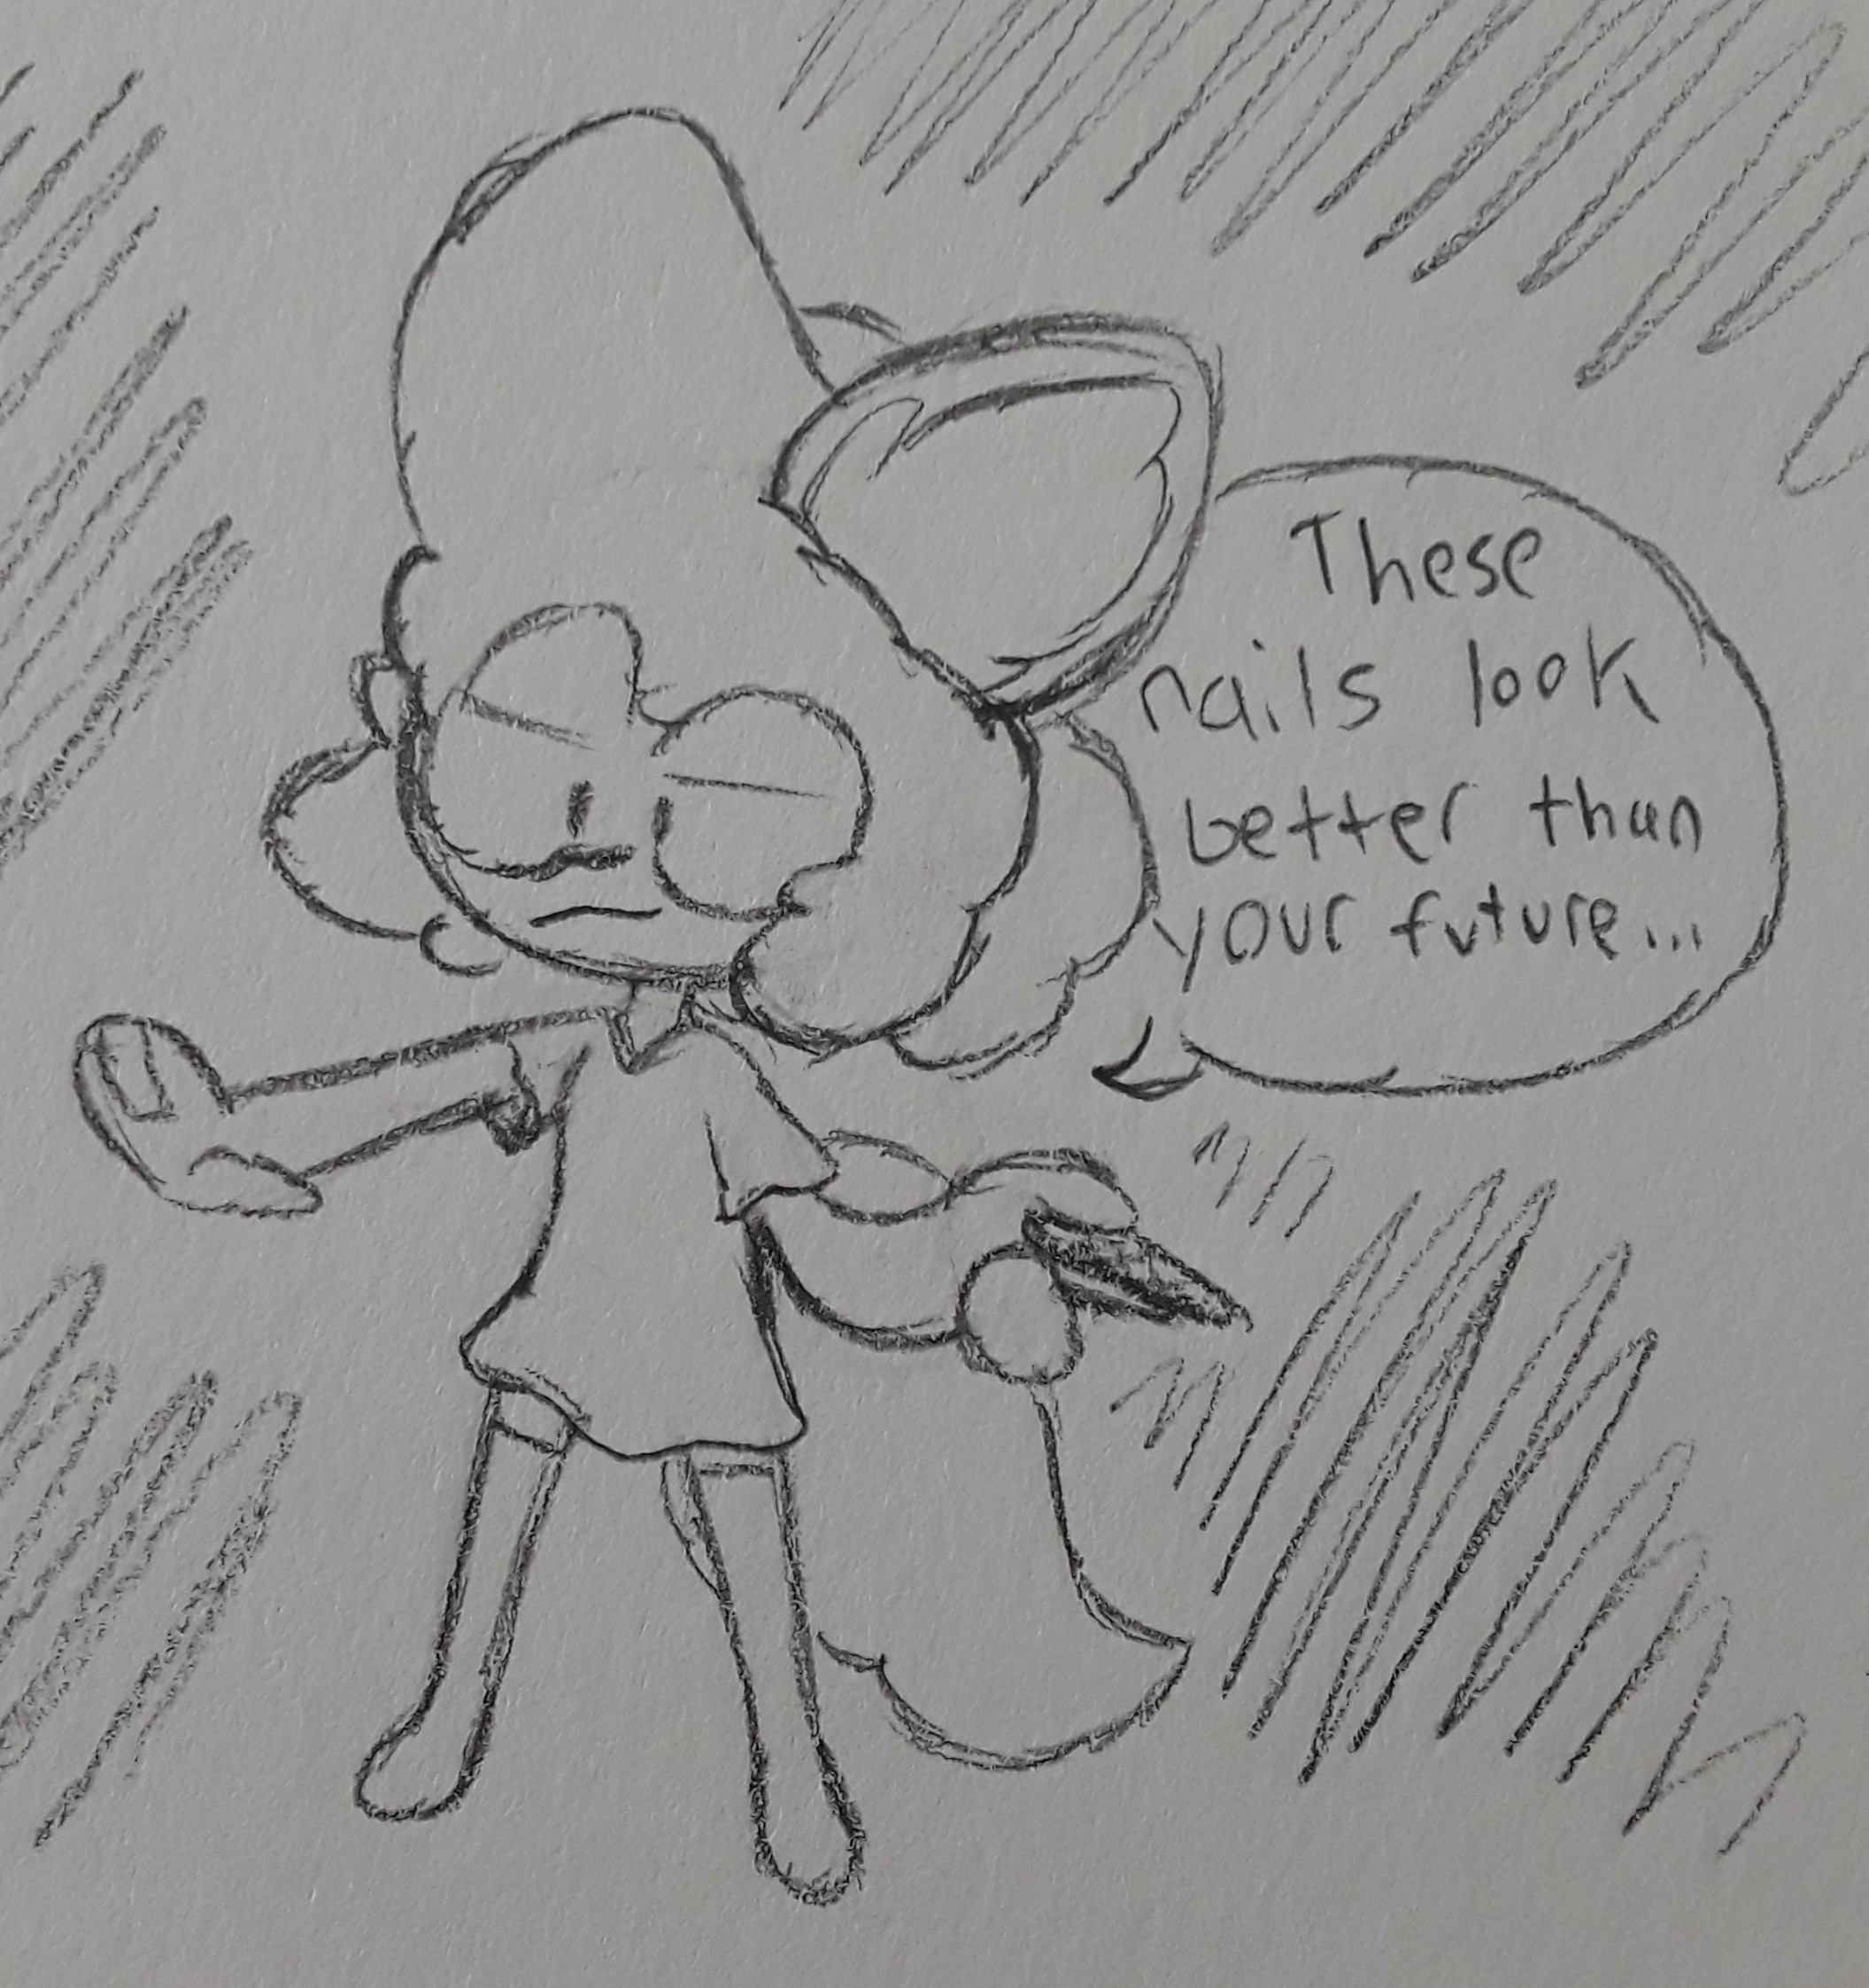 These
nails look
better than
your future...